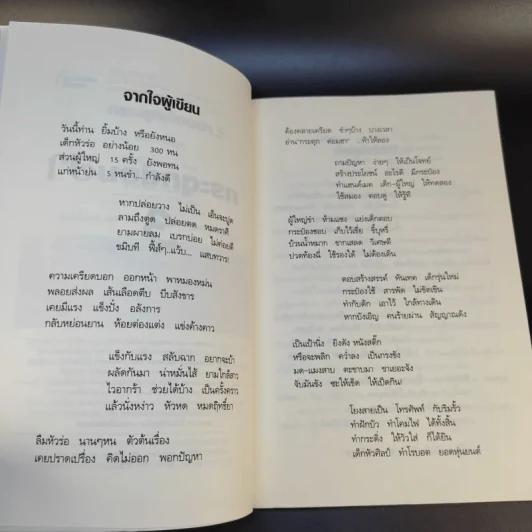 จากใจผู้เขียน
วันนี้ท่าน ยิ้มบ้าง หรือยังหนอ
เด็กหัวร่อ อย่างน้อย 300 หน
ส่วนผู้ใหญ่ 15 ครั้ง ยังพอทน
แก่หน้าย่น 5 หนขำ... กำลังดี
หากปล่อยวาง ไม่เป็น เอ็นจะปูด
ลามถึงตูด ปล่อยตด หมดราศี
ยามผายลม เบรกบ่อย ไม่ค่อยดี
ขมิบที ฟี้ส์ๆ...แว้บ... แสบทวาร!
ความเครียดบอก ออกหน้า พาหมองหม่น
พลอยส่งผล เส้นเลือดตีบ บีบสังขาร
เคยมีแรง แข็งปั๋ง อลังการ
กลับหย่อนยาน ห้อยต่องแต่ง แข่งค้างคาว
แข็งกับแรง สลับฉาก อยากจะบ้า
ผลัดกันมา น่าหมั่นไส้ ยามใกล้สาว
ไวอากร้า ช่วยได้บ้าง เป็นครั้งคราว
แล้วนั่งหง่าว หัวหด หมดฤทธิ์ยา
ลืมหัวร่อ นานๆหน ตัวต้นเรื่อง
เคยปราดเปรื่อง คิดไม่ออก พอกปัญหา
ต้องคลายเครียด ขำๆบ้าง บางเวลา
อ่าน"กระตุก ต่อมฮา" ...ท้าให้ลอง
ถามปัญหา ง่ายๆ ให้เป็นโจทย์
สร้างประโยชน์ อะไรดี มีกระป๋อง
ทำแฮนด์เมด เด็ก-ผู้ใหญ่ ให้ทดลอง
ใช้สมอง ตอบดู ให้รู้ที
ผู้ใหญ่ขำ ห้ามแซง แย่งเด็กตอบ
กระป๋องชอบ เก็บไว้เขี่ย ขี้บุหรี่
บ้วนน้ำหมาก ขากเสลด วิเศษดี
ปวดท้องฉี่ ใช้รองได้ ไม่ต้องเดิน
ตอบสร้างสรรค์ ทันเทค เด็กรุ่นใหม่
กระป๋องใช้ สารพัด ไม่ขัดเขิน
ทำกับดัก เอาไว้ ใกล้ทางเดิน
หากบังเอิญ คนร้ายผ่าน สัญญาณดัง
เป็นเป้านิ่ง ยิงดัง หนังสติ๊ก
หรือจะพลิก คว่ำลง เป็นกรงขัง
มด-แมงสาบ ตะขาบมา ขาเยอะจัง
จับมันขัง ซะให้เข็ด ให้เป็ดกิน!
โยงสายเป็น โทรศัพท์ กับริมรั้ว
ทำฝักบัว ทำโคมไฟ ได้ทั้งสิ้น
ทำกระดิ่ง ให้วัวใส่ ก็ได้ยิน
เด็กหัวศิลป์ ทำโรบอต ยอดหุ่นยนต์